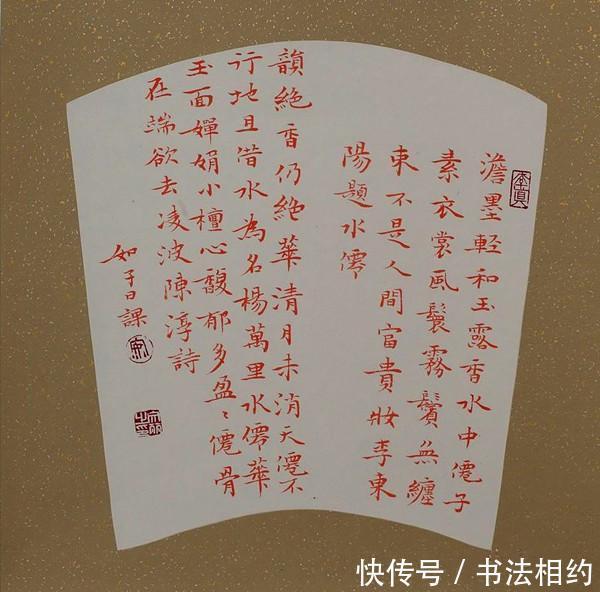 澹墨輕和玉露香水中僊子
素衣裳風鬟霧鬢無纏
束不是人間富貴妝李東
陽題水僊
韻絕香仍絕華清月未消天僊不
行地且借水為名楊萬里水僊華
玉面嬋娟小檀心馥郁多盈〻僊骨
在端欲去凌波陳淳詩
如子日課
快传号 / 书法相约